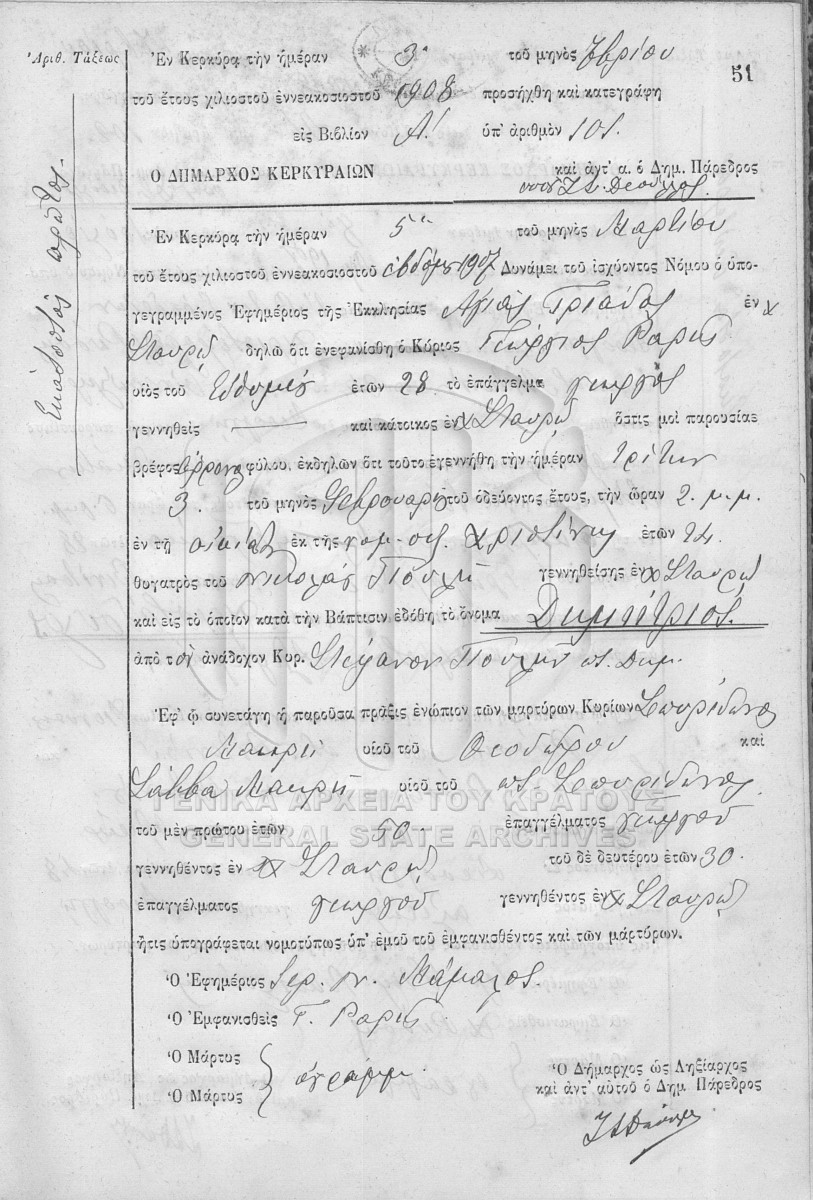 51
Ἀριθ. Τάξεως
Ἑκατοστὸς πρῶτος.
Ἐν Κερκύρᾳ τὴν ἡμέραν 3 τοῦ μηνὸς
τοῦ ἔτους χιλιοστοῦ ἐννεακοσιοστοῦ 1908 προσήχθη καὶ κατεγράφη
εἰς Βιβλίον Α! ὑπ' ἀριθμὸν 101.
Ο ΔΗΜΑΡΧΟΣ ΚΕΡΚΥΡΑΙΩΝ καὶ ἀντ' α. ὁ Δημ. Πάρεδρος
Ἐν Κερκύρᾳ τὴν ἡμέραν 5 τοῦ μηνὸς Μαρτίου
τοῦ ἔτους χιλιοστοῦ ἐννεακοσιοστοῦ ἑβδόμου 1907 Δυνάμει τοῦ ἰσχύοντος Νόμου ὁ ὑπο-
γεγραμμένος Ἐφημέριος τῆς Ἐκκλησίας Ἁγίας Τριάδος ἐν χ
Σταυρῷ δηλῶ ὅτι ἐνεφανίσθη ὁ Κύριος Γεώργιος
υἱὸς τοῦ ἐτῶν 28 τὸ ἐπάγγελμα γεωργὸς
γεννηθεὶς — καὶ κάτοικος ἐν χ Σταυρῷ ὅστις μοὶ παρουσίασε
βρέφος ἄρρενος φύλου, ἐκδηλῶν ὅτι τοῦτο ἐγεννήθη τὴν ἡμέραν τρίτην
3. τοῦ μηνὸς Φεβρουαρίου τοῦ ὁδεύοντος ἔτους, τὴν ὥραν 2. μ.μ.
ἐν τῇ οἰκίᾳ ἐκ τῆς Χριστίνης ἐτῶν 24
θυγατρὸς τοῦ Νικολάου Πουλῆ γεννηθείσης ἐν χ Σταυρῷ
καὶ εἰς τὸ ὁποῖον κατὰ τὴν Βάπτισιν ἐδόθη τὸ ὄνομα Δημήτριος.
ἀπὸ τὸν ἀνάδοχον Κυρ. Στέφανον Πουλῆν Δημ.
Ἐφ' ᾧ συνετάγη ἡ παροῦσα πρᾶξις ἐνώπιον τῶν μαρτύρων Κυρίων Σπυρίδωνος
Μακρῆ υἱοῦ τοῦ Θεοδώρου καὶ
Σάββα Μακρῆ υἱοῦ τοῦ Σπυρίδωνος.
ΓΕΝΙΚΑ ΑΡΧΕΙΑ ΤΟΥ ΚΡΑΤΟΥΣ
τοῦ μὲν πρώτου ἐτῶν 50. ἐπαγγέλματος γεωργοῦ
GENERAL STATE ARCHIVES
γεννηθέντος ἐν χ Σταυρῷ τοῦ δὲ δευτέρου ἐτῶν 30.
ἐπαγγέλματος γεωργοῦ γεννηθέντος ἐν χ Σταυρῷ
ἥτις ὑπογράφεται νομοτύπως ὑπ' ἐμοῦ τοῦ ἐμφανισθέντος καὶ τῶν μαρτύρων.
Ὁ Ἐφημέριος Ἱερ. Ν.
Ὁ Ἐμφανισθεὶς Γ.
Ὁ Μάρτυς
ἀγράμμ.
Ὁ Μάρτυς
Ὁ Δήμαρχος ὡς Ληξίαρχος
καὶ ἀντ' αὐτοῦ ὁ Δημ. Πάρεδρος